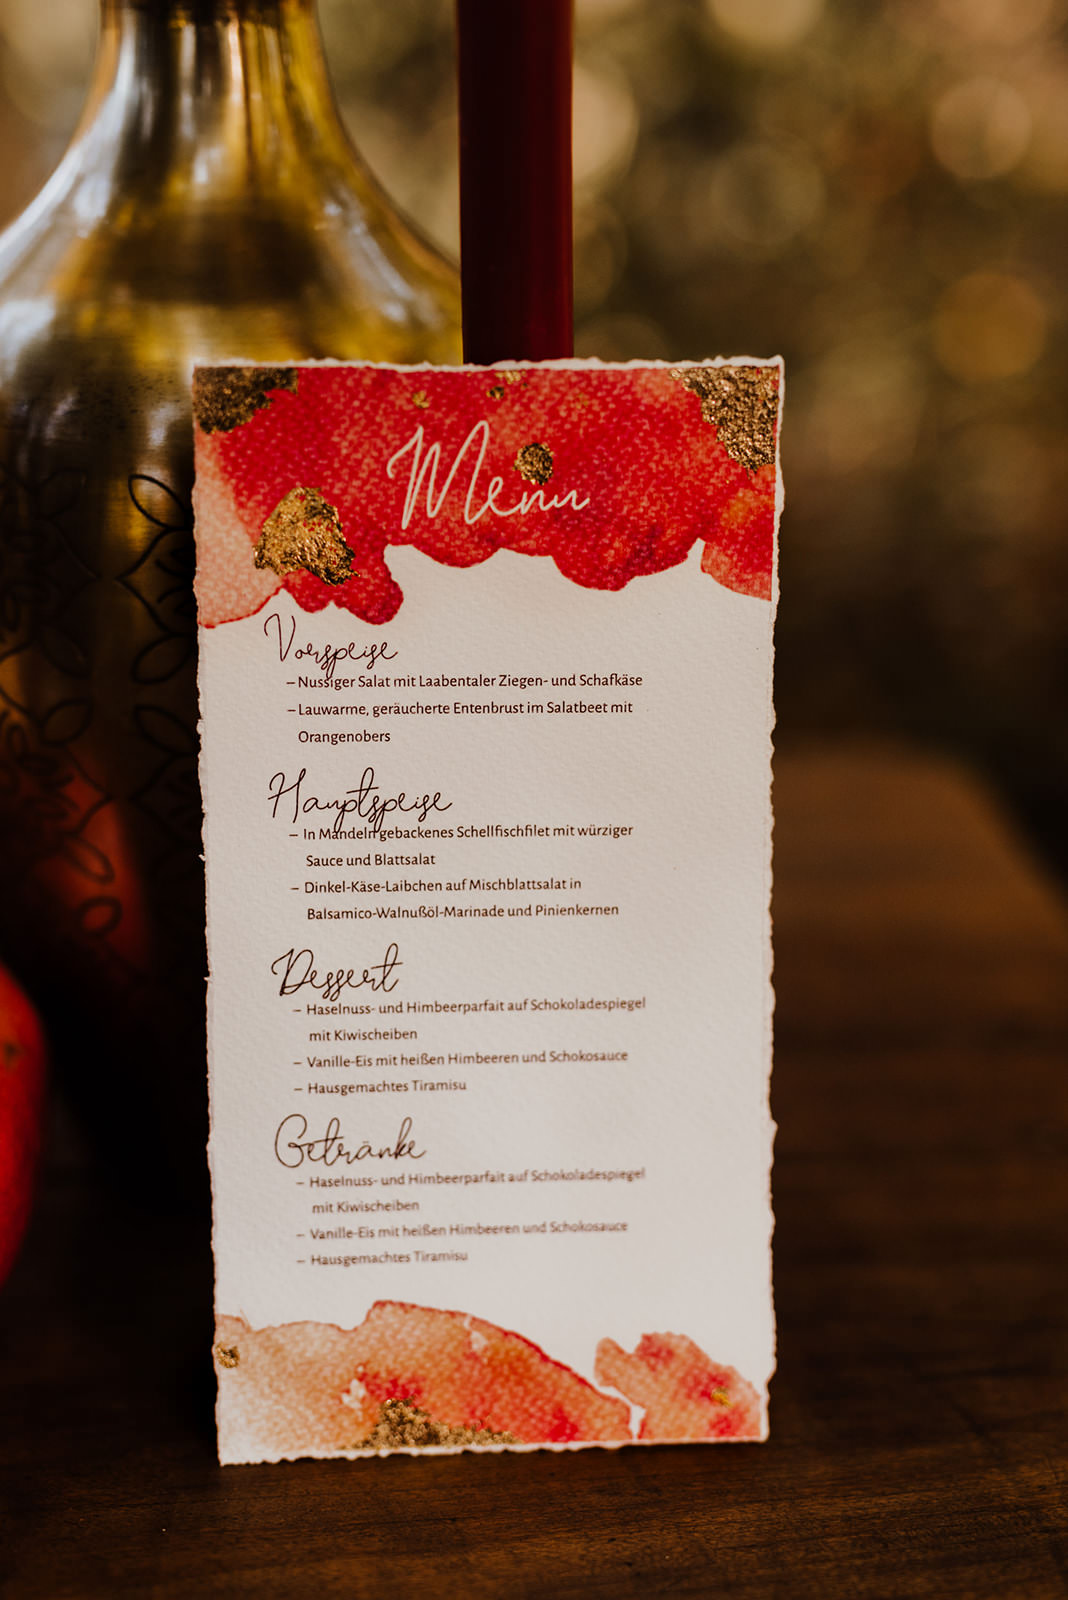 Menu
Vorspeise
– Nussiger Salat mit Laabentaler Ziegen- und Schafkäse
– Lauwarme, geräucherte Entenbrust im Salatbeet mit
Orangenobers
Hauptspeise
– In Mandeln gebackenes Schellfischfilet mit würziger
Sauce und Blattsalat
– Dinkel-Käse-Laibchen auf Mischblattsalat in
Balsamico-Walnußöl-Marinade und Pinienkernen
Dessert
– Haselnuss- und Himbeerparfait auf Schokoladespiegel
mit Kiwischeiben
– Vanille-Eis mit heißen Himbeeren und Schokosauce
– Hausgemachtes Tiramisu
Getränke
– Haselnuss- und Himbeerparfait auf Schokoladespiegel
mit Kiwischeiben
– Vanille-Eis mit heißen Himbeeren und Schokosauce
– Hausgemachtes Tiramisu